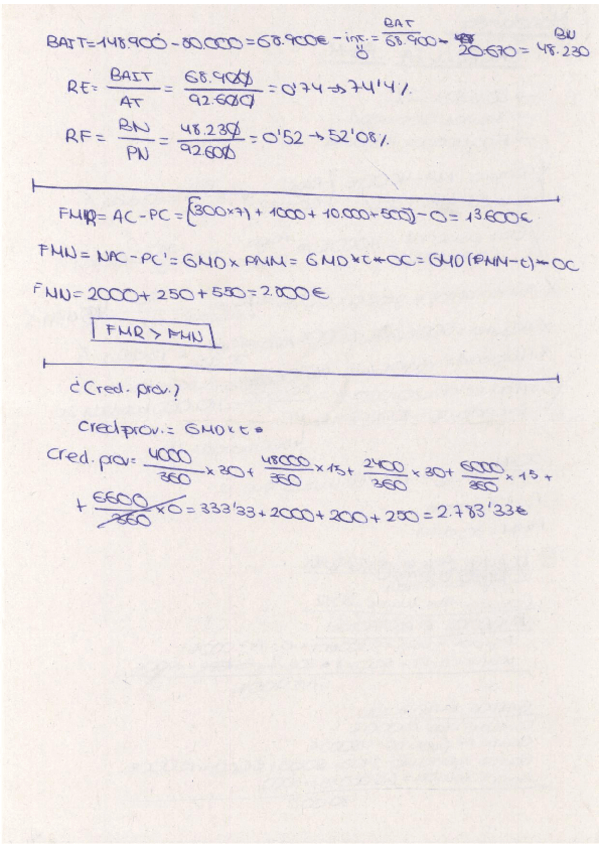 BAIT = 148.900 - 80.000 = 68.900€ - int. = BAT 68.900 - 20.670 = BN 48.230
0
RE = BAIT / AT = 68.900 / 92.600 = 0'74 → 74'4%
RF = BN / PN = 48.230 / 92.600 = 0'52 → 52'08%
FMR = AC - PC = [(300x7) + 1000 + 10.000 + 500] - 0 = 13600€
FMN = NAC - PC' = GMD x PMM = GMD x t - OC = GMD (PMM - t) - OC
FMN = 2000 + 250 + 550 = 2.800€
FMR > FMN
¿Cred. prov.?
Cred prov. = GMD x t =
Cred. prov = 4000/360 x 30 + 48000/360 x 15 + 2400/360 x 30 + 6000/360 x 15 +
+ 6600/360 x 0 = 333'33 + 2000 + 200 + 250 = 2.783'33€